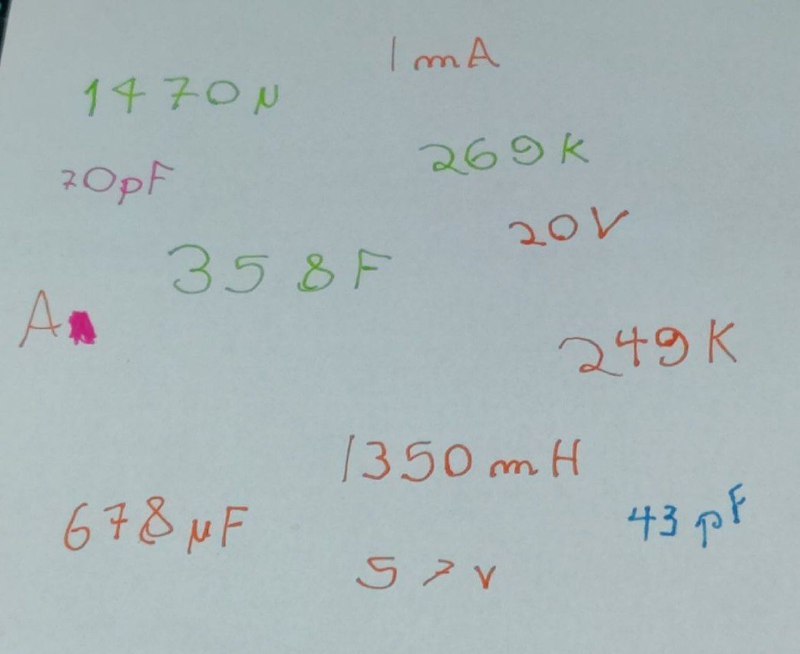 1mA
1470µ
269K
70pF
20V
358F
A
249K
1350mH
678µF
43pF
57V